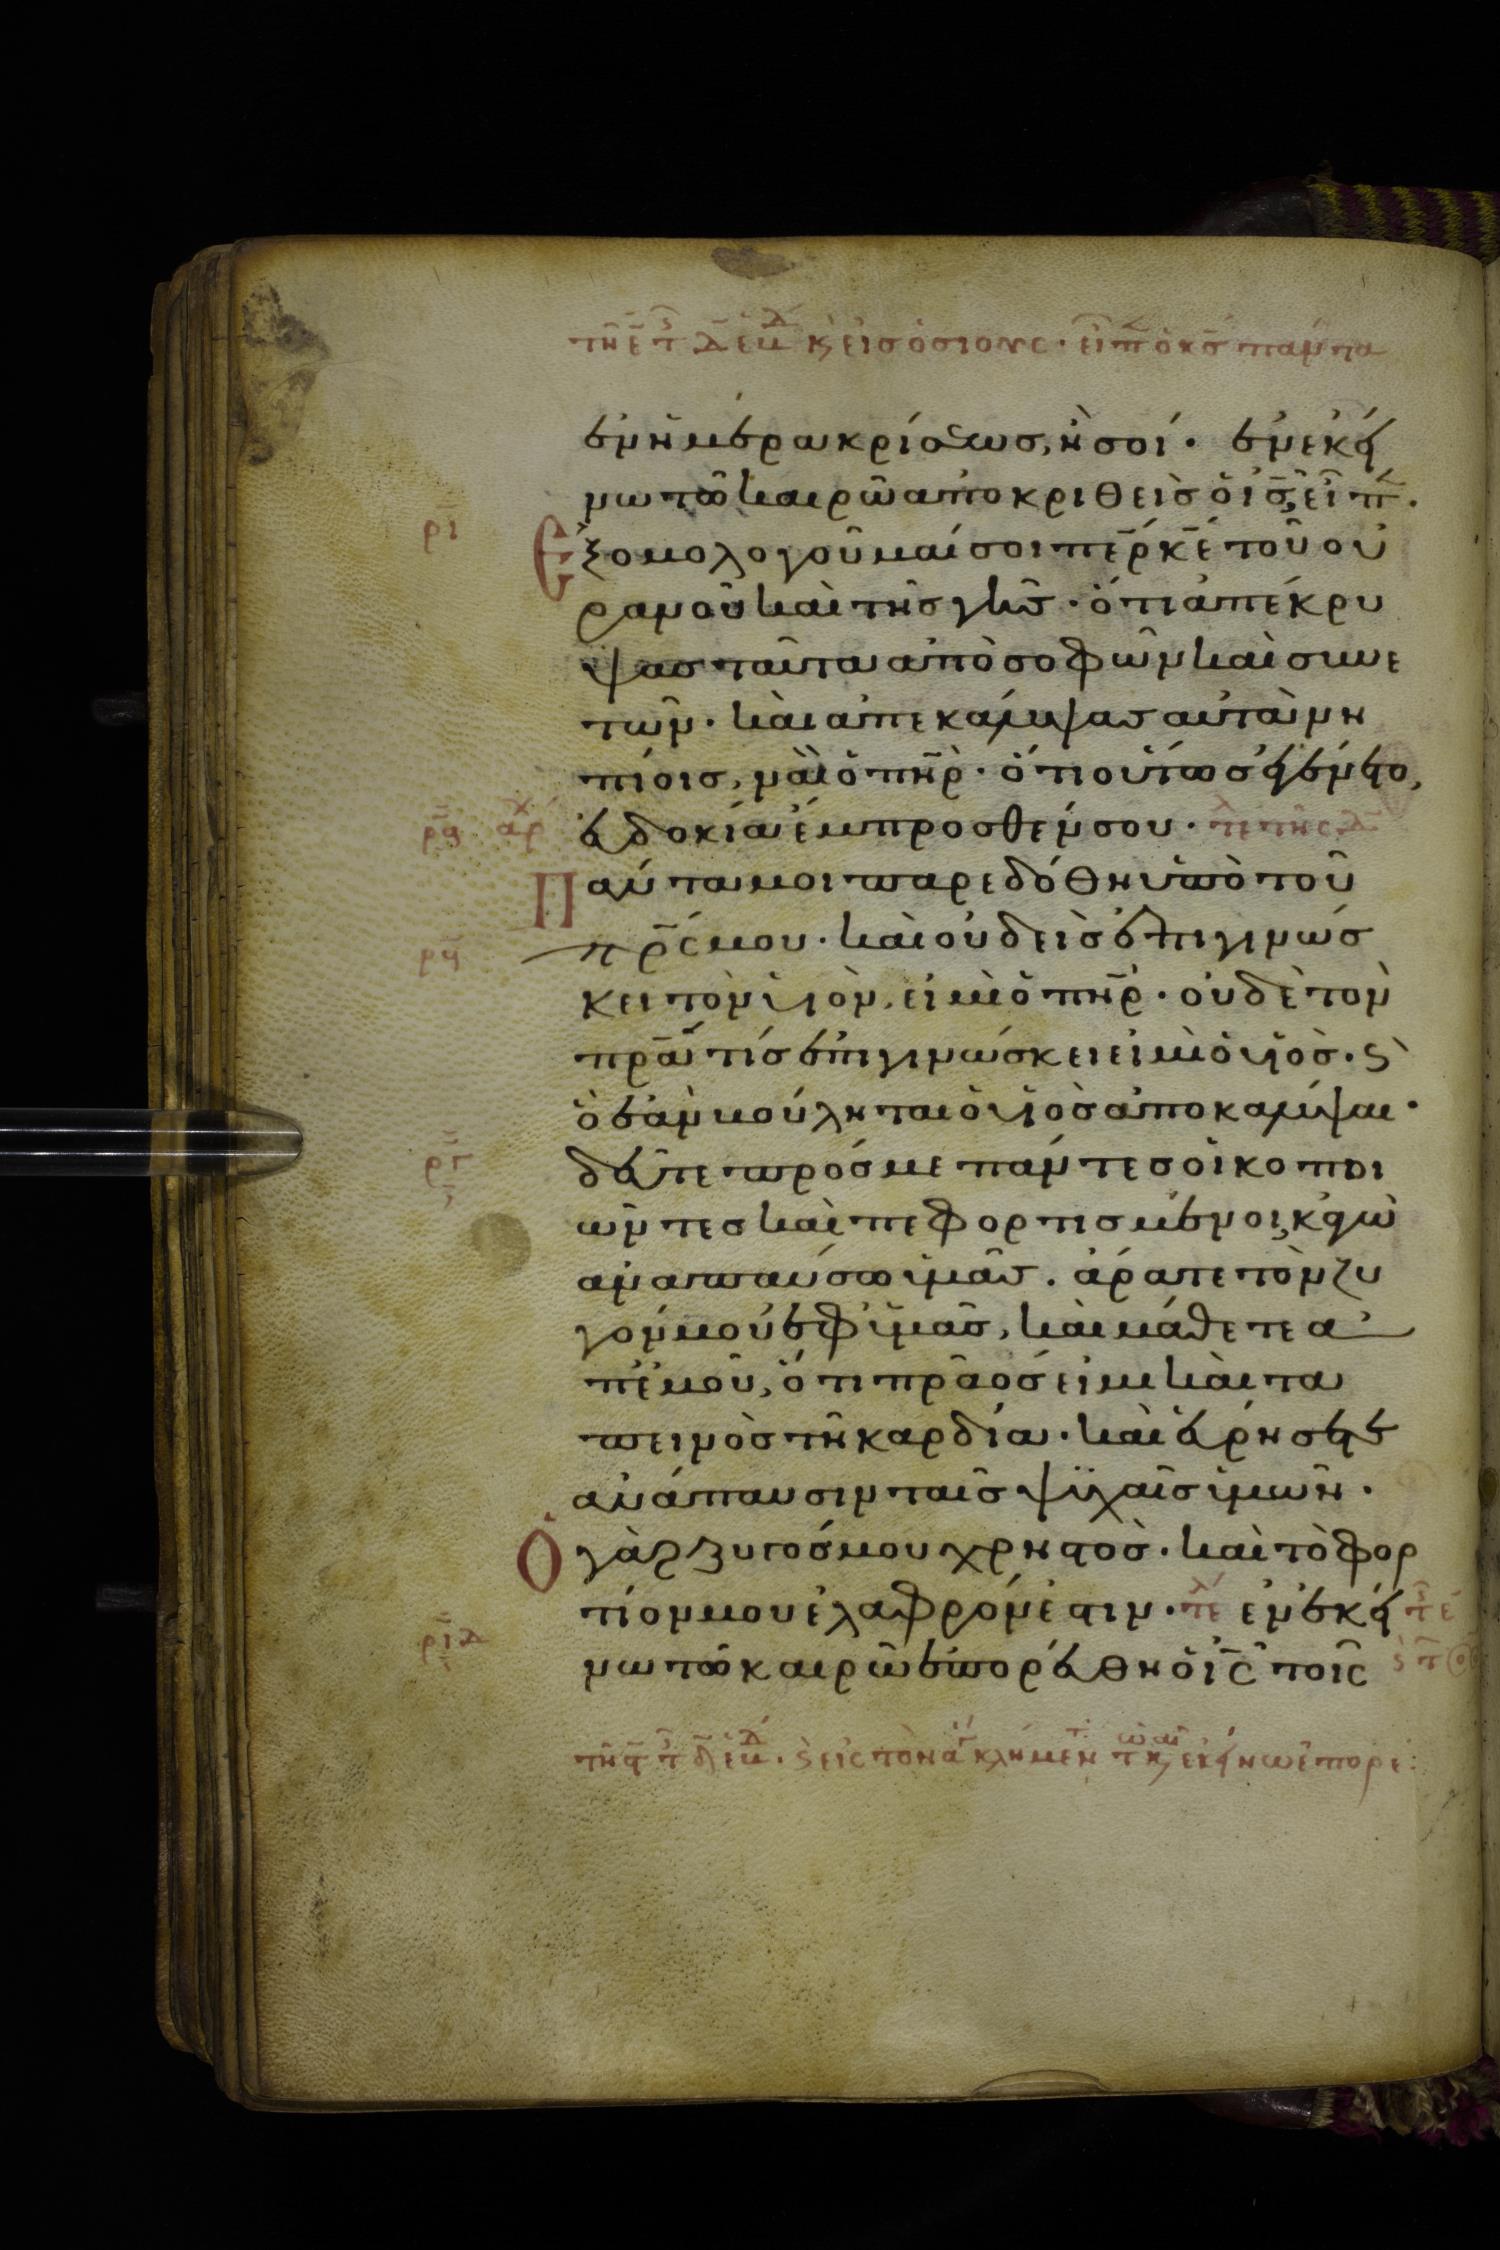 ἐν ἡμέρα κρίσεως, ἢ σοί · ἐν ἐκεί
νω τῶ καιρῶ ἀποκριθεὶς ὁ ις εἶπ ·
Ἐξομολογοῦμαί σοι περ κε τοῦ οὐ
ρανοῦ καὶ τῆς γῆς · ὅτι ἀπέκρυ
ψας ταῦτα ἀπὸ σοφῶν καὶ συνε
τῶν · καὶ ἀπεκάλυψας αὐτὰ νη
πίοις, ναὶ ὁ πηρ · ὅτι οὕτως ἐγένετο,
εὐδοκία ἔμπροσθέν σου ·
Πάντα μοι παρεδόθη ὑπὸ τοῦ
πρς μου · καὶ οὐδεὶς ἐπιγινώσ
κει τὸν ὑιὸν, εἰ μὴ ὁ πηρ · οὐδὲ τὸν
πρα τίς ἐπιγινώσκει εἰ μὴ ὁ ὑιὸς · ϛ
ὃ ἐὰν βούληται ὁ ὑιὸς ἀποκαλύψαι ·
δεῦτε πρός με πάντες οἱ κοπι
ῶντες καὶ πεφορτισμένοι, κἀγὼ
ἀναπαύσω ὑμᾶς . ἄρατε τὸν ζυ
γόν μου ἐφ ὑμᾶς, καὶ μάθετε ἀ
π ἐμοῦ, ὅτι πρᾶός εἰμι καὶ τα
πεινὸς τῆ καρδία · καὶ εὑρήσετε
ἀνάπαυσιν ταῖς ψυχαῖς ὑμῶν ·
Ὁ γὰρ ζυγός μου χρηστὸς · καὶ τὸ φορ
τίον μου ἐλαφρόν ἐστιν · τέ ἐν ἐκεί
νω τῶ καιρῶ ἐπορεύθη ὁ ις τοῖς